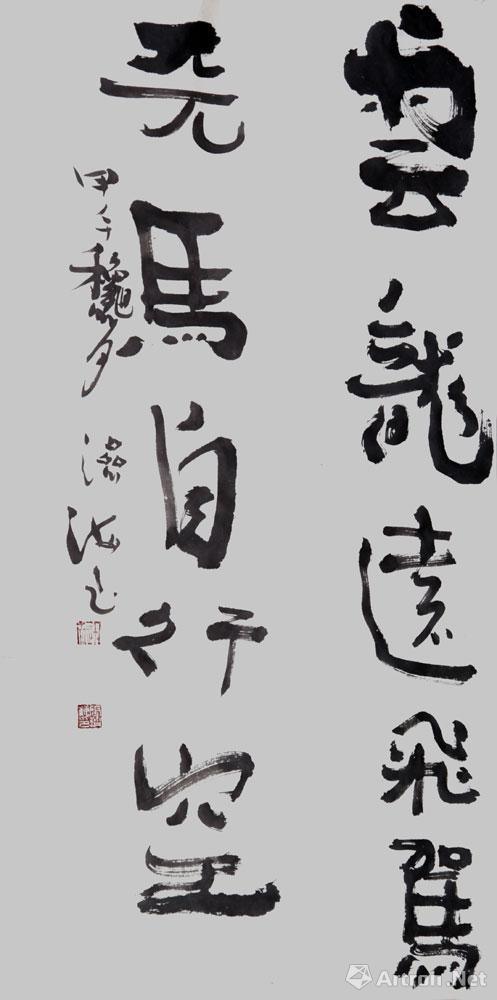 雲龍遠飛駕
天馬自行空
甲午穐月
海
Artron.Net